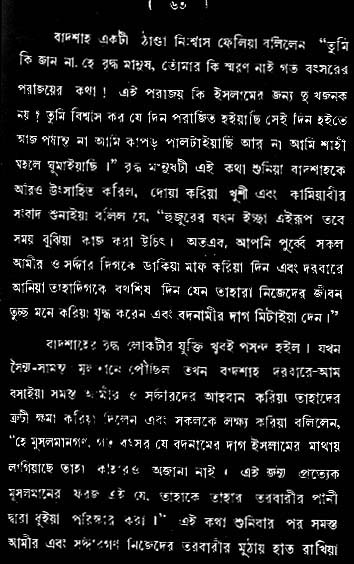 ( ৬৩ )
বাদশাহ একটী ঠাণ্ডা নিঃশ্বাস ফেলিয়া বলিলেন “তুমি
কি জান না, হে বৃদ্ধ মানুষ, তোমার কি স্মরণ নাই গত বৎসরের
পরাজয়ের কথা! এই পরাজয় কি ইসলামের জন্য দুঃখজনক
নয়? তুমি বিশ্বাস কর যে দিন পরাজিত হইয়াছি সেই দিন হইতে
আজ পর্য্যন্ত না আমি কাপড় পালটাইয়াছি আর না আমি শাহী
মহলে ঘুমাইয়াছি।” বৃদ্ধ মানুষটী এই কথা শুনিয়া বাদশাহকে
আরও উৎসাহিত করিল, দোয়া করিয়া খুশী এবং কামিয়াবীর
সংবাদ শুনাইয়া বলিল যে, “হুজুরের যখন ইচ্ছা এইরূপ তবে
সময় বুঝিয়া কাজ করা উচিৎ। অতএব, আপনি পূর্ব্বে সকল
আমীর ও সর্দ্দার দিগকে ডাকিয়া মাফ করিয়া দিন এবং দরবারে
আনিয়া তাহাদিগকে বখশিষ দিন যেন তাহারা নিজেদের জীবন
তুচ্ছ মনে করিয়া যুদ্ধ করেন এবং বদনামীর দাগ মিটাইয়া দেন।”
বাদশাহের বৃদ্ধ লোকটীর যুক্তি খুবই পসন্দ হইল। যখন
সৈন্য-সামন্ত পৌঁছিল তখন বাদশাহ দরবারে-আম
বসাইয়া সমস্ত আমীর ও সর্দ্দারদের আহবান করিয়া তাহাদের
ত্রুটী ক্ষমা করিয়া দিলেন এবং সকলকে লক্ষ্য করিয়া বলিলেন,
“হে মুসলমানগণ, গত বৎসর যে বদনামের দাগ ইসলামের মাথায়
লাগিয়াছে তাহা কাহারও অজানা নাই। এই জন্য প্রত্যেক
মুসলমানের ফরজ এই যে, তাহাকে তাহার তরবারীর পানী
দ্বারা ধুইয়া পরিস্কার করা।” এই কথা শুনিবার পর সমস্ত
আমীর এবং সর্দ্দারগণ নিজেদের তরবারীর মুঠায় হাত রাখিয়া